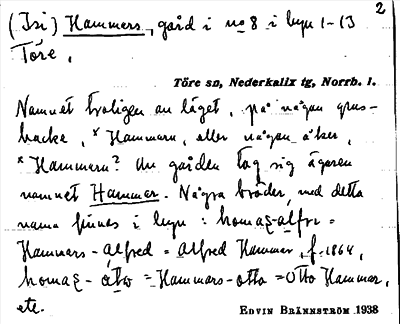 2
(Isi) Hammers, gård i nº 8 i byn 1-13
Töre.
Töre sn, Nederkalix tg, Norrb. l.
Namnet troligen av läget, på någon grus-
backe, *Hammarn, eller någon åker,
*Hammarn? Av gården tog sig ägaren
namnet Hammar. Några bröder med detta
namn finnes i byn: homas-alfre =
Hammars-Alfred = Alfred Hammar, f. 1864,
homas-otto = Hammars-Otto = Otto Hammar,
etc.
EDVIN BRÄNNSTRÖM 1938